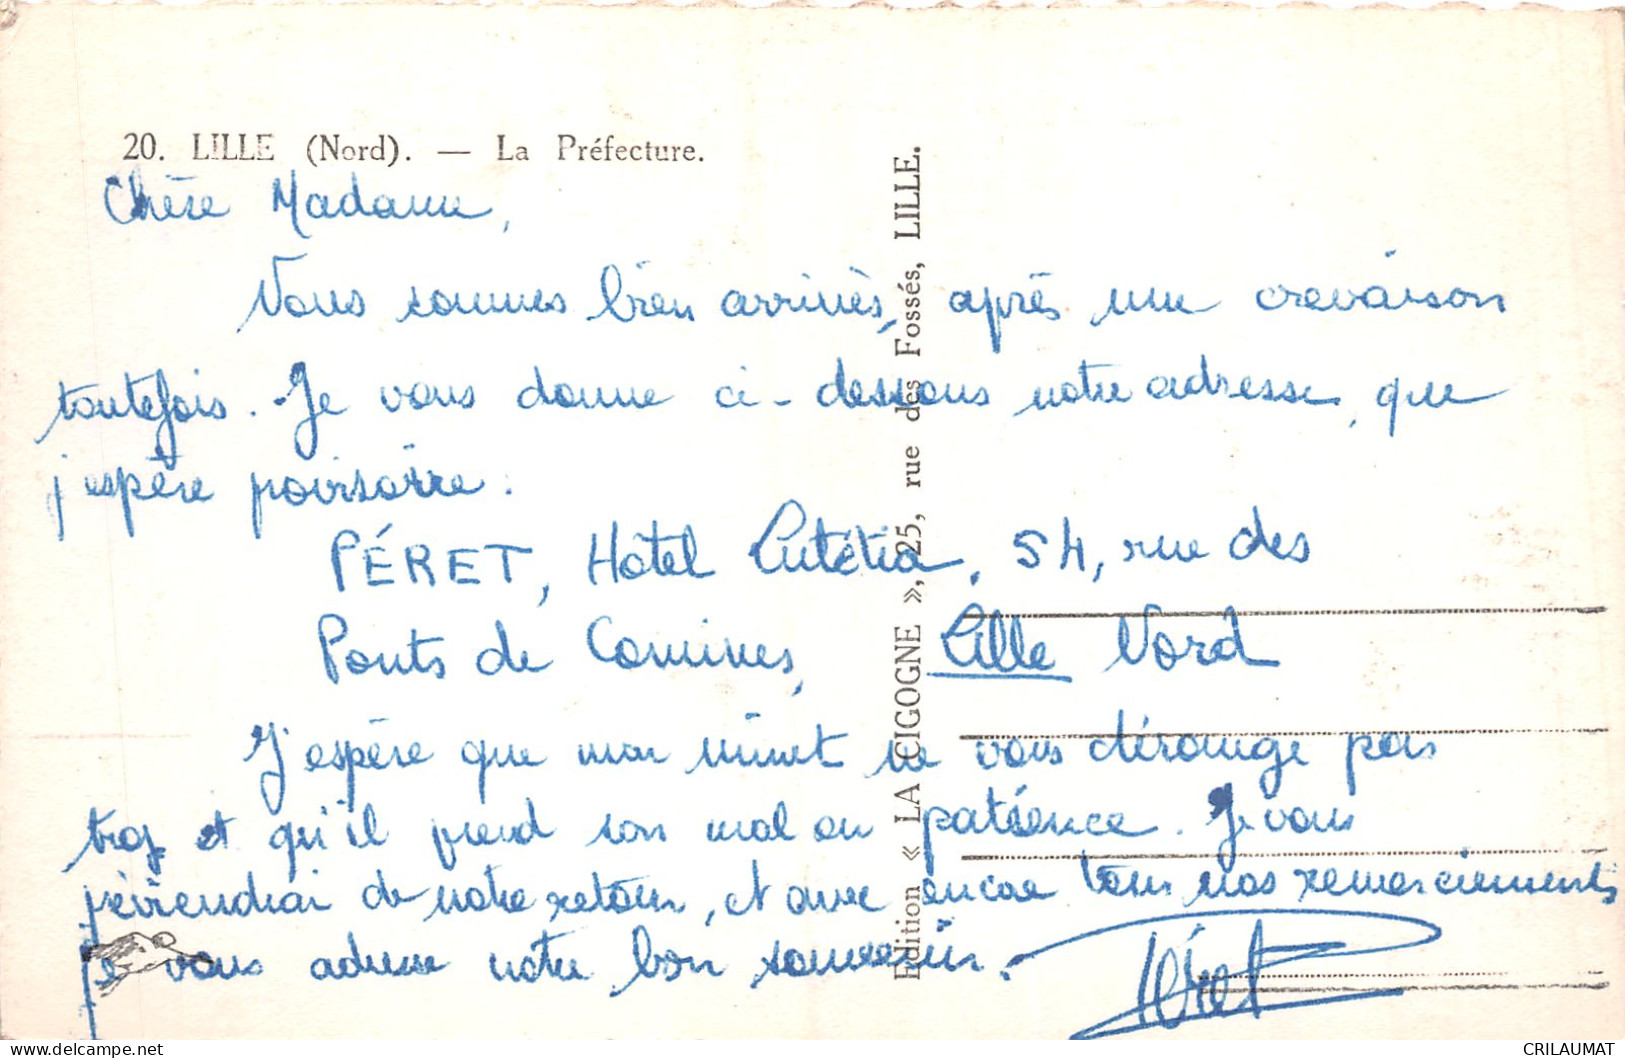 20. LILLE (Nord). — La Préfecture.
Chère Madame,
Nous sommes bien arrivés, après une crevaison
toutefois. Je vous donne ci-dessous notre adresse, que
j'espère provisoire.
PÉRET, Hôtel Lutétia, 54, rue des
Ponts de Comines, Lille Nord
J'espère que mon minet ne vous dérange pas
trop et qu'il prend son mal en patience. Je vous
préviendrai de notre retour, et avec encore tous nos remerciements
je vous adresse notre bon souvenir.
Péret
Edition « LA CIGOGNE », 25, rue des Fossés, LILLE.
CRILAUMAT